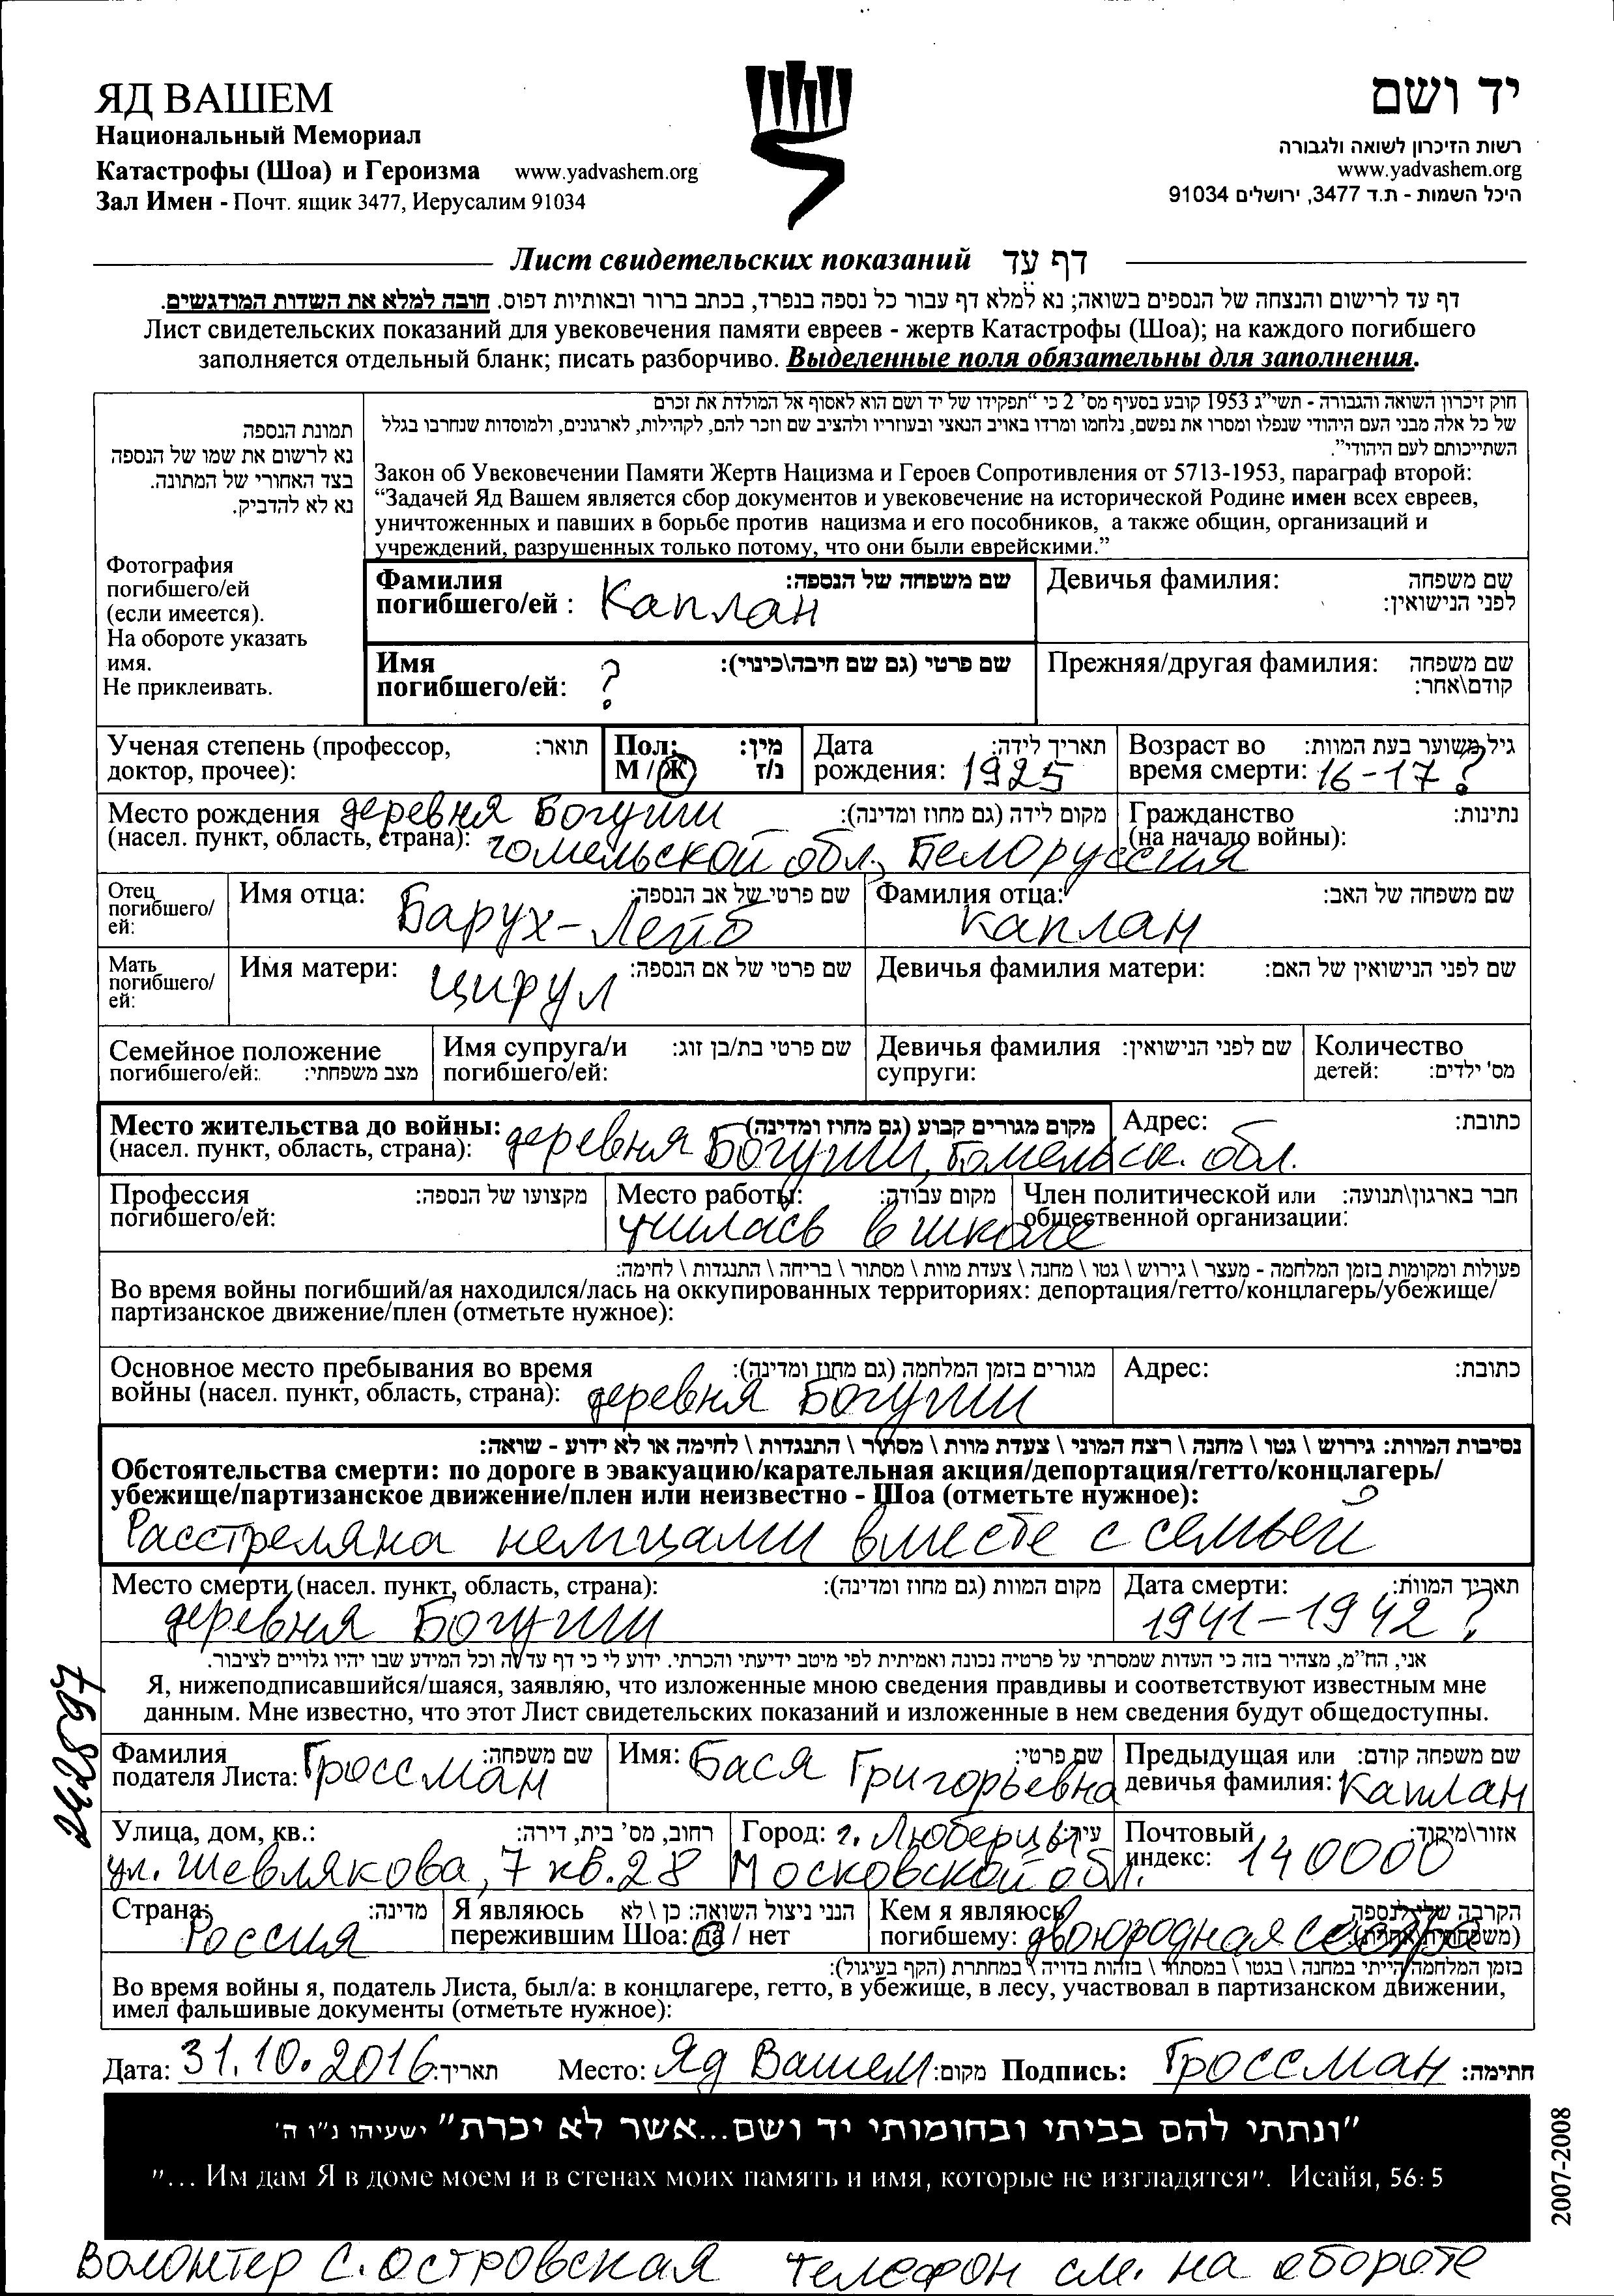 ЯД ВАШЕМ
Национальный Мемориал
Катастрофы (Шоа) и Героизма www.yadvashem.org
Зал Имен - Почт. ящик 3477, Иерусалим 91034
יד ושם
רשות הזיכרון לשואה ולגבורה
www.yadvashem.org
היכל השמות - ת.ד 3477, ירושלים 91034
Лист свидетельских показаний דף עד
דף עד לרישום והנצחה של הנספים בשואה; נא למלא דף עבור כל נספה בנפרד, בכתב ברור ובאותיות דפוס. חובה למלא את השדות המודגשים.
Лист свидетельских показаний для увековечения памяти евреев - жертв Катастрофы (Шоа); на каждого погибшего
заполняется отдельный бланк; писать разборчиво. Выделенные поля обязательны для заполнения.
תמונת הנספה
נא לרשום את שמו של הנספה
בצד האחורי של המתונה.
נא לא להדביק.
Фотография
погибшего/ей
(если имеется).
На обороте указать
имя.
Не приклеивать.
חוק זיכרון השואה והגבורה - תשי"ג 1953 קובע בסעיף מס' 2 כי "תפקידו של יד ושם הוא לאסוף אל המולדת את זכרם
של כל אלה מבני העם היהודי שנפלו ומסרו את נפשם, נלחמו ומרדו באויב הנאצי ובעוזריו ולהציב שם וזכר להם, לקהילות, לארגונים, ולמוסדות שנחרבו בגלל
השתייכותם לעם היהודי".
Закон об Увековечении Памяти Жертв Нацизма и Героев Сопротивления от 5713-1953, параграф второй:
"Задачей Яд Вашем является сбор документов и увековечение на исторической Родине имен всех евреев,
уничтоженных и павших в борьбе против нацизма и его пособников, а также общин, организаций и
учреждений, разрушенных только потому, что они были еврейскими."
Фамилия שם משפחה של הנספה:
погибшего/ей : Каплан
Девичья фамилия: שם משפחה
לפני הנישואין:
Имя שם פרטי (גם שם חיבה\כינוי):
погибшего/ей: ?
Прежняя/другая фамилия: שם משפחה
קודם\אחר:
Ученая степень (профессор, תואר:
доктор, прочее):
Пол: מין:
М / Ж ז/נ
Дата תאריך לידה:
рождения: 1925
Возраст во גיל משוער בעת המוות:
время смерти: 16-17?
Место рождения деревня Богуши מקום לידה (גם מחוז ומדינה):
(насел. пункт, область, страна): гомельской обл., Белоруссия
Гражданство נתינות:
(на начало войны):
Отец
погибшего/
ей:
Имя отца: שם פרטי של אב הנספה:
Барух-Лейб
Фамилия отца: שם משפחה של האב:
Каплан
Мать
погибшего/
ей:
Имя матери: שם פרטי של אם הנספה:
Цирул
Девичья фамилия матери: שם לפני הנישואין של האם:
Семейное положение
погибшего/ей: מצב משפחתי:
Имя супруга/и שם פרטי בת/בן זוג:
погибшего/ей:
Девичья фамилия שם לפני הנישואין:
супруги:
Количество
детей: מס' ילדים:
Место жительства до войны: מקום מגורים קבוע (גם מחוז ומדינה)
(насел. пункт, область, страна): деревня Богуши, Гомельск. обл.
Адрес: כתובת:
Профессия מקצועו של הנספה:
погибшего/ей:
Место работы: מקום עבודה:
училась в школе
Член политической или חבר בארגון\תנועה:
общественной организации:
פעולות ומקומות בזמן המלחמה - מעצר \ גירוש \ גטו \ מחנה \ צעדת מוות \ מסתור \ בריחה \ התנגדות \ לחימה:
Во время войны погибший/ая находился/лась на оккупированных территориях: депортация/гетто/концлагерь/убежище/
партизанское движение/плен (отметьте нужное):
Основное место пребывания во время מגורים בזמן המלחמה (גם מחוז ומדינה):
войны (насел. пункт, область, страна): деревня Богуши
Адрес: כתובת:
נסיבות המוות: גירוש \ גטו \ מחנה \ רצח המוני \ צעדת מוות \ מסתור \ התנגדות \ לחימה או לא ידוע - שואה:
Обстоятельства смерти: по дороге в эвакуацию/карательная акция/депортация/гетто/концлагерь/
убежище/партизанское движение/плен или неизвестно - Шоа (отметьте нужное):
Расстреляна немцами вместе с семьей
Место смерти (насел. пункт, область, страна): מקום המוות (גם מחוז ומדינה):
деревня Богуши
Дата смерти: תאריך המוות:
1941-1942?
אני, הח"מ, מצהיר בזה כי העדות שמסרתי על פרטיה נכונה ואמיתית לפי מיטב ידיעתי והכרתי. ידוע לי כי דף עד זה וכל המידע שבו יהיו גלויים לציבור.
Я, нижеподписавшийся/шаяся, заявляю, что изложенные мною сведения правдивы и соответствуют известным мне
данным. Мне известно, что этот Лист свидетельских показаний и изложенные в нем сведения будут общедоступны.
Фамилия שם משפחה:
подателя Листа: Гроссман
Имя: Бася Григорьевна שם פרטי:
Предыдущая или שם משפחה קודם:
девичья фамилия: Каплан
Улица, дом, кв.: רחוב, מס' בית, דירה:
ул. Шевлякова, 7 кв. 28
Город: г. Люберцы עיר:
Московской обл.
Почтовый אזור\מיקוד:
индекс: 140000
Страна: מדינה:
Россия
Я являюсь הנני ניצול השואה: כן \ לא
пережившим Шоа: да / нет
Кем я являюсь הקרבה שלי לנספה
погибшему: двоюродная сестра (משפחתית\אחרת):
בזמן המלחמה הייתי במחנה \ בגטו \ במסתור \ בזהות בדויה \ במחתרת (הקף בעיגול):
Во время войны я, податель Листа, был/а: в концлагере, гетто, в убежище, в лесу, участвовал в партизанском движении,
имел фальшивые документы (отметьте нужное):
Дата: 31.10.2016 תאריך: Место: Яд Вашем מקום: Подпись: Гроссман חתימה:
"ונתתי להם בביתי ובחומותי יד ושם...אשר לא יכרת" ישעיהו נ"ו ה'
"... Им дам Я в доме моем и в стенах моих память и имя, которые не изгладятся". Исайя, 56: 5
Волонтер С. Островская телефон см. на обороте
2428597
2007-2008